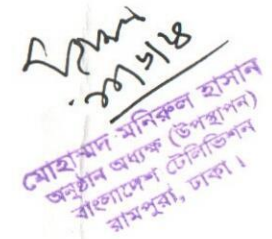 মোহাম্মদ মনিরুল হাসান
অনুষ্ঠান অধ্যক্ষ (উপস্থাপন)
বাংলাদেশ টেলিভিশন
রামপুরা, ঢাকা।